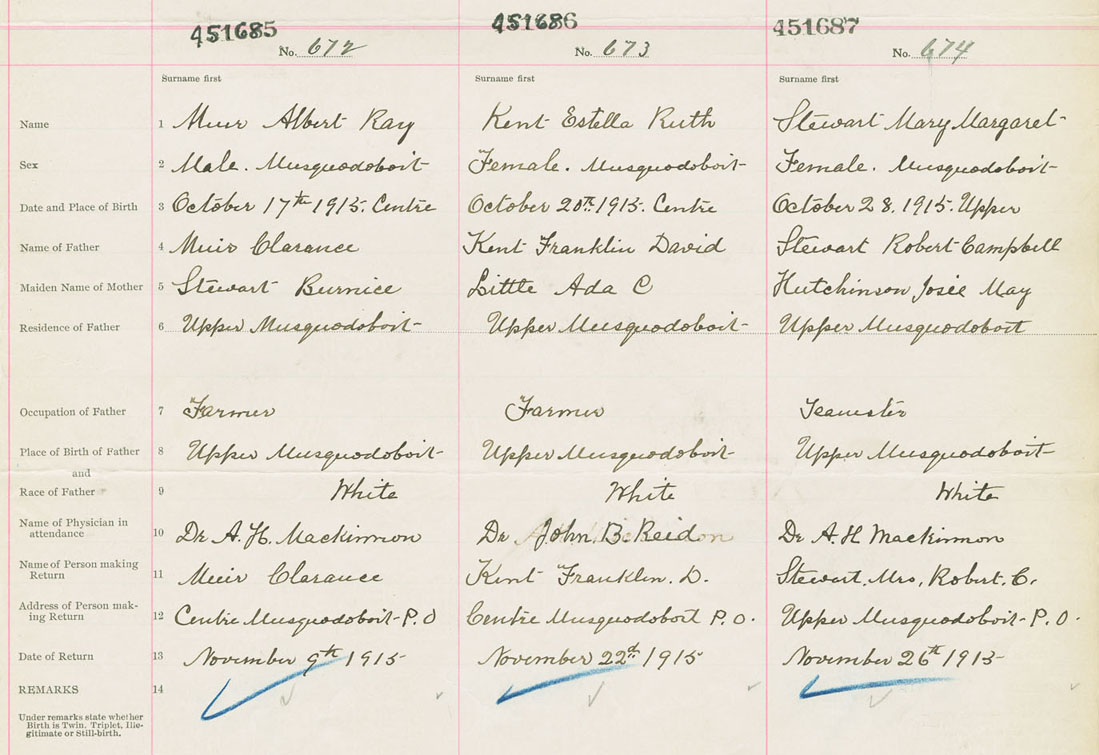 451685 451686 451687
No. 672 No. 673 No. 674
Surname first Surname first Surname first
Name 1 Muir Albert Ray Kent Estella Ruth Stewart Mary Margaret
Sex 2 Male. Musquodoboit Female. Musquodoboit Female. Musquodoboit
Date and Place of Birth 3 October 17th 1915. Centre October 20th 1915. Centre October 28. 1915. Upper
Name of Father 4 Muir Clarance Kent Franklin David Stewart Robert Campbell
Maiden Name of Mother 5 Stewart Burnice Little Ada C Hutchinson Josie May
Residence of Father 6 Upper Musquodoboit Upper Musquodoboit Upper Musquodoboit
Occupation of Father 7 Farmer Farmer Teamster
Place of Birth of Father 8 Upper Musquodoboit Upper Musquodoboit Upper Musquodoboit
and
Race of Father 9 White White White
Name of Physician in
attendance 10 Dr A. H. Mackinnon Dr John. B. Reid Dr A. H Mackinnon
Name of Person making
Return 11 Muir Clarance Kent Franklin. D. Stewart, Mrs, Robert. C.
Address of Person mak-
ing Return 12 Centre Musquodoboit P. O Centre Musquodoboit P. O. Upper Musquodoboit P. O.
Date of Return 13 November 9th 1915 November 22nd 1915 November 26th 1915
REMARKS 14
Under remarks state whether
Birth is Twin. Triplet, Ille-
gitimate or Still-birth.